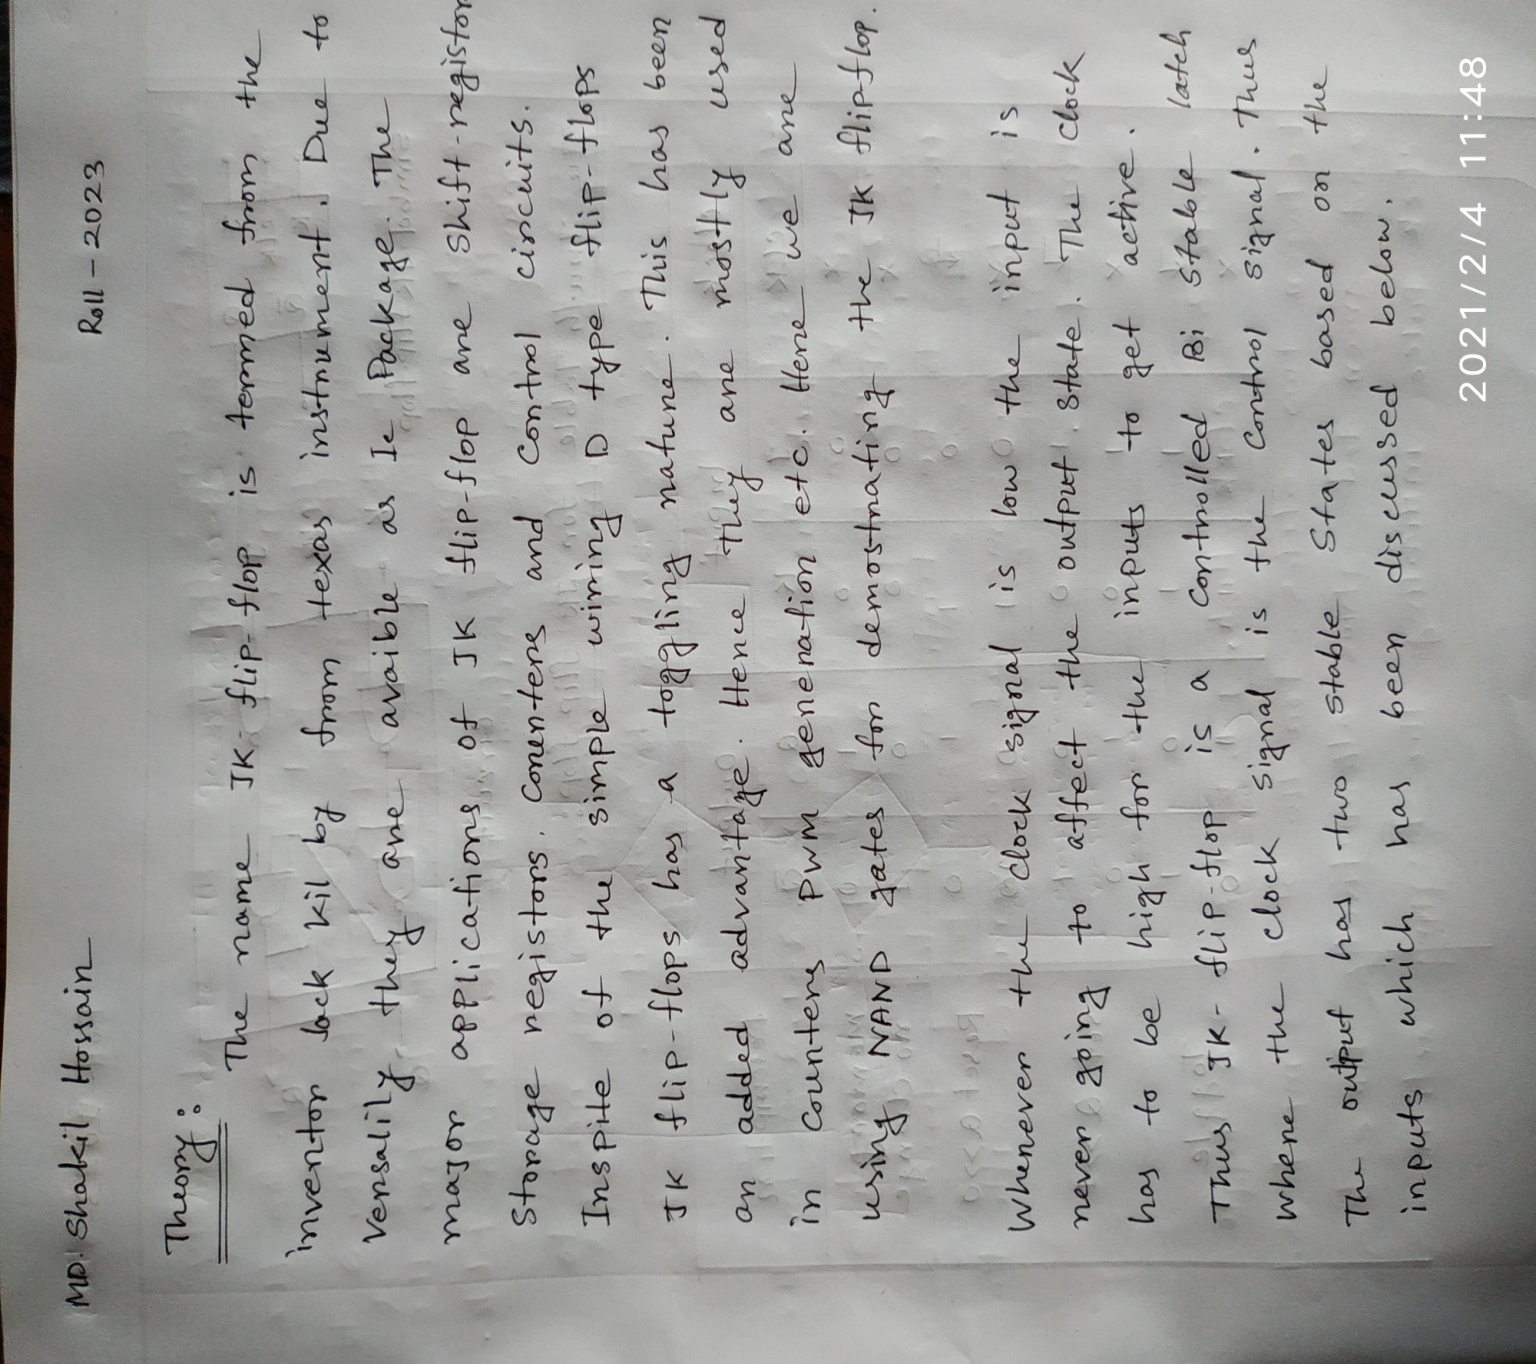 MD. Shakil Hossain Roll - 2023
Theory:
The name JK-flip-flop is termed from the
inventor Jack Kil by from texas instrument. Due to
versalily they are avaible as Ic Package. The
major applications of JK flip-flop are shift-registor
storage registors. counters and control circuits.
Inspite of the simple wiring D type flip-flops
JK flip-flops has a toggling nature. This has been
an added advantage. Hence they are mostly used
in counters PWM generation etc. Here we are
using NAND gates for demostrating the JK flip-flop.
Whenever the clock signal is low the input is
never going to affect the output state. The clock
has to be high for the inputs to get active.
Thus JK-flip-flop is a controlled Bi stable latch
where the clock signal is the control signal. Thus
The output has two stable states based on the
inputs which has been discussed below.
2021/2/4 11:48